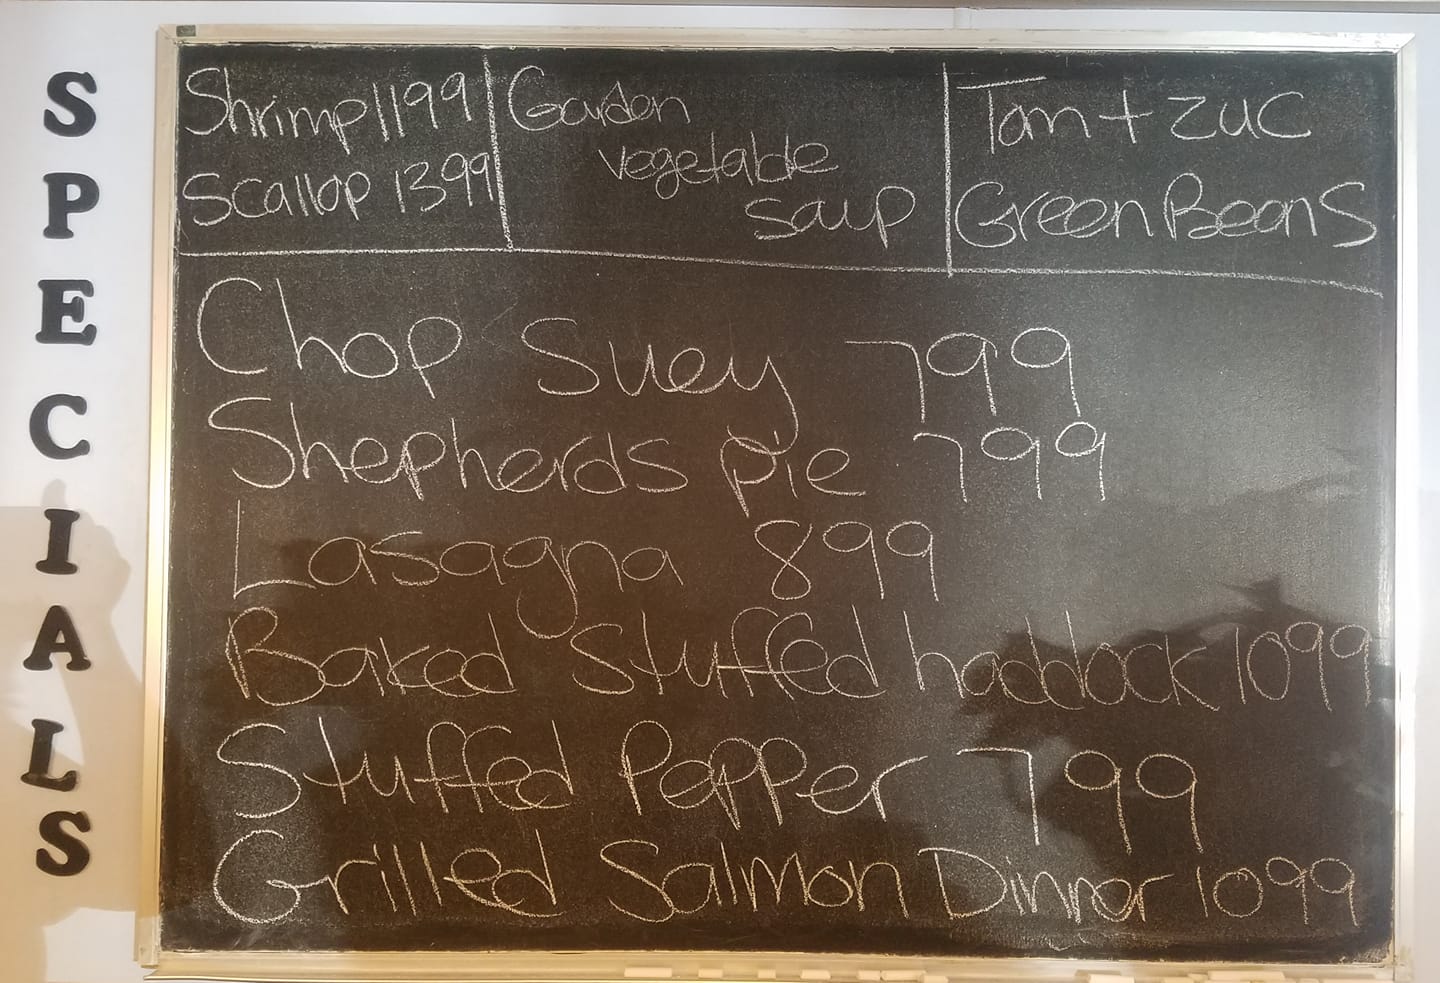 SPECIALS
Shrimp 1199
Scallop 1399
Garden
vegetable
soup
Tom + zuc
Green Beans
Chop Suey 799
Shepherds pie 799
Lasagna 899
Baked Stuffed haddock 1099
Stuffed Pepper 799
Grilled Salmon Dinner 1099